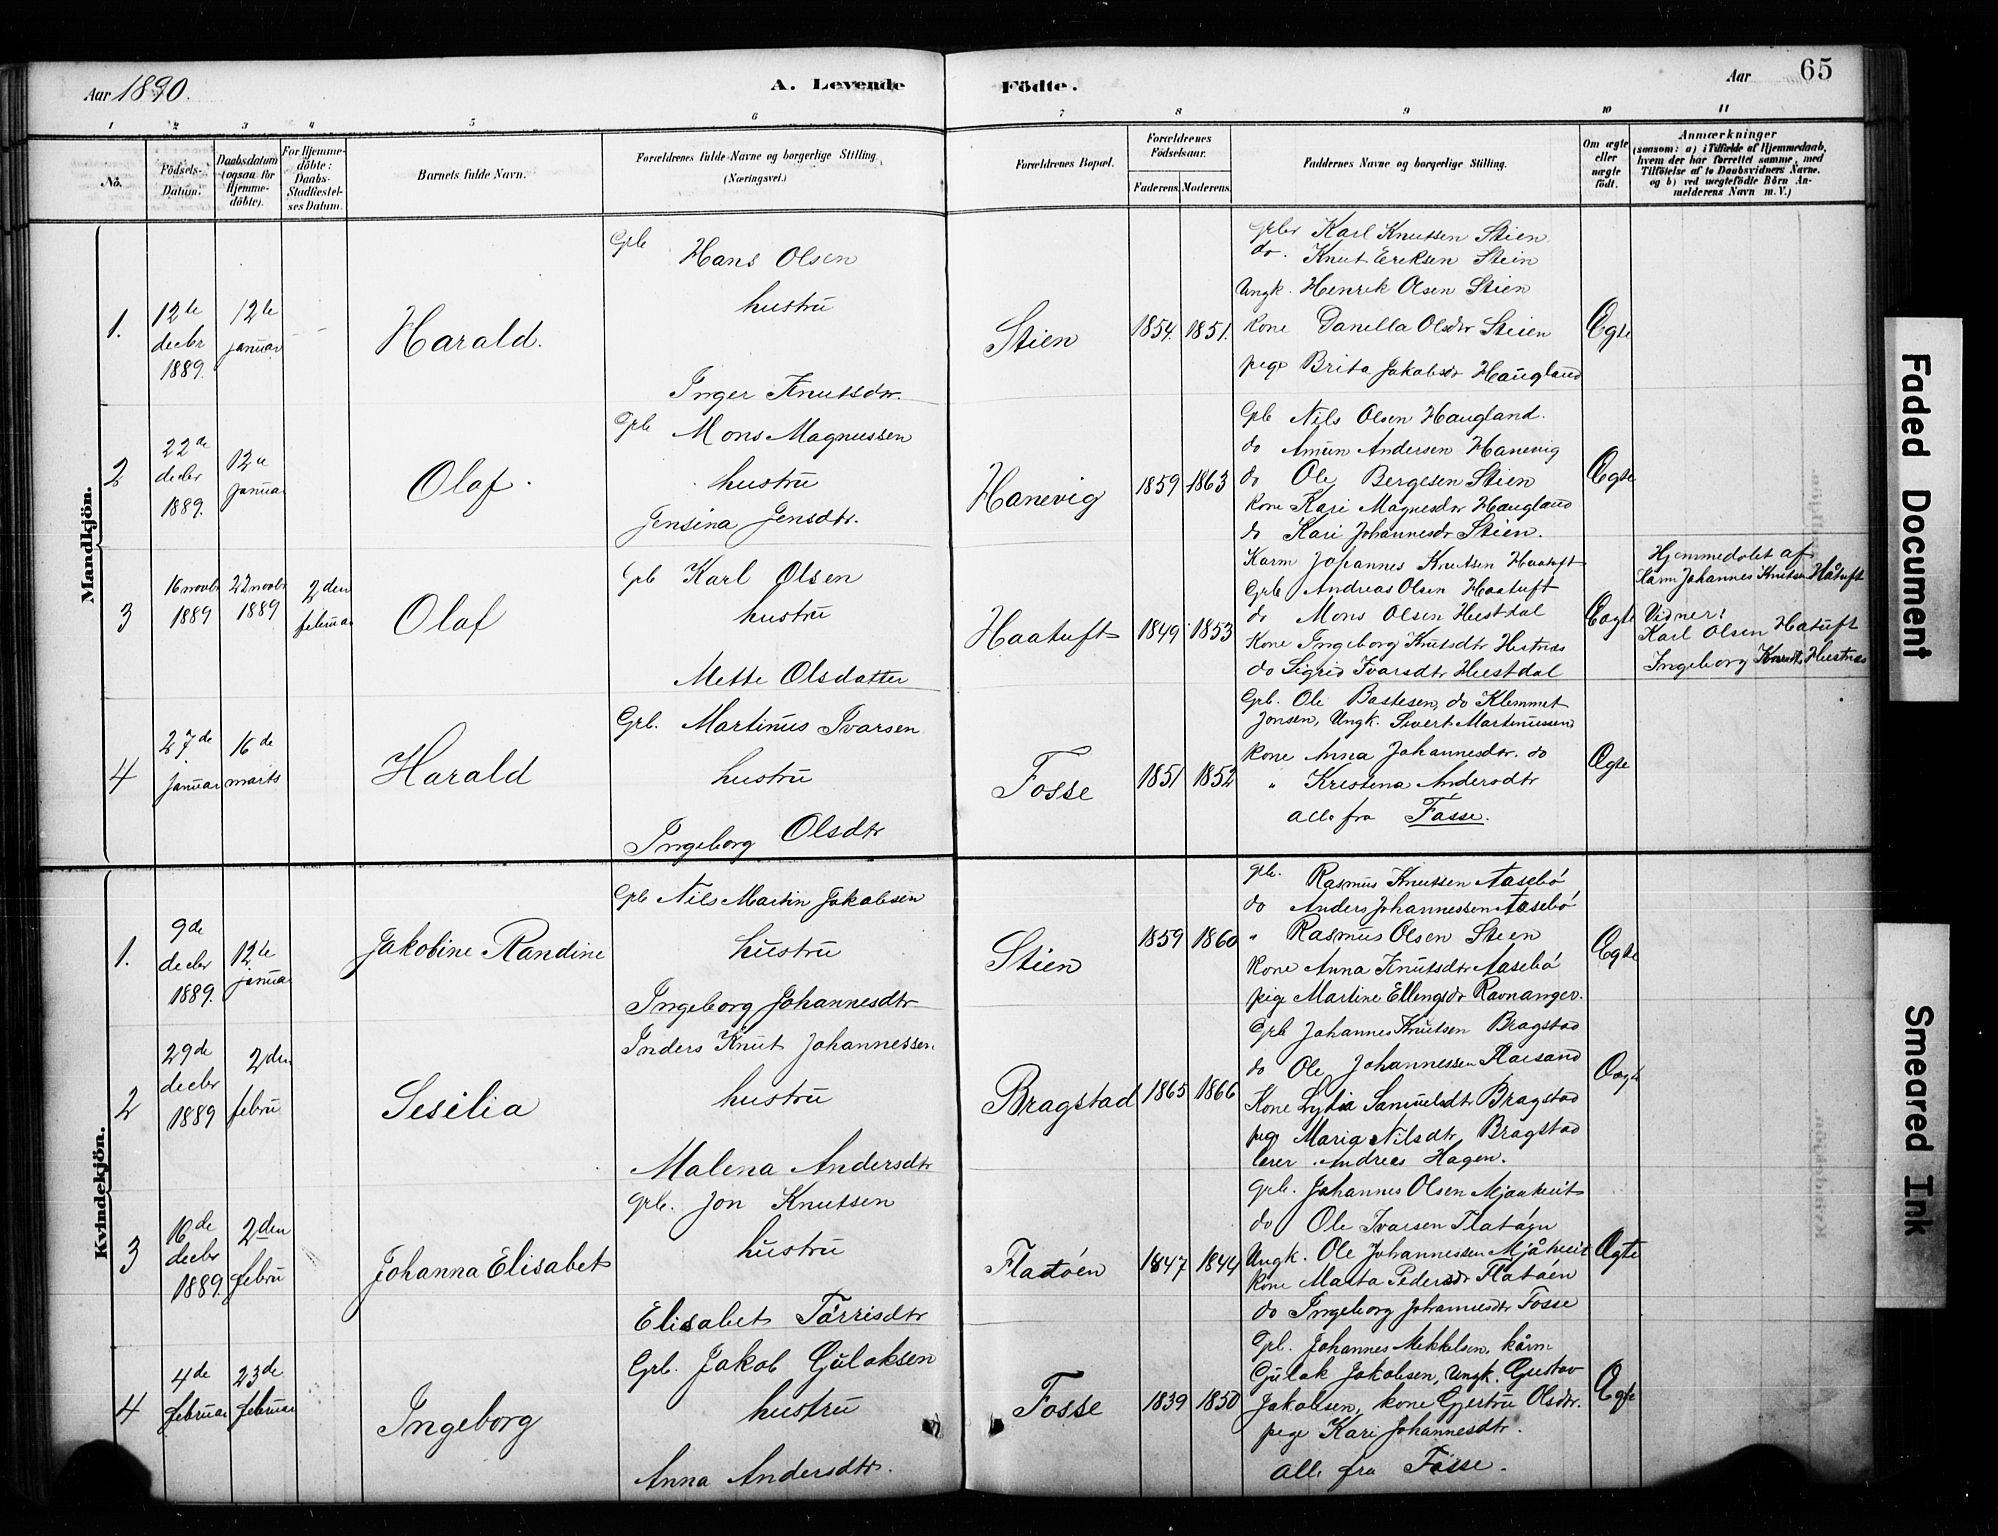 Aar 1890.
A. Levende
Födte.
Aar
65
1 2 3 4 5 6 7 8 9 10 11
No.
Födsels-
Datum.
Daabsdatum
(ogsaa for
Hjemme-
döbte).
For Hjemme-
döbte:
Daabs-
Stadfæstel-
ses Datum.
Barnets fulde Navn.
Forældrenes fulde Navne og borgerlige Stilling
(Næringsvei.)
Forældrenes Bopæl.
Forældrenes
Födselsaar.
Faderens. Moderens.
Faddernes Navne og borgerlige Stilling.
Om ægte
eller
uægte
födt.
Anmærkninger
(saasom: a) i Tilfælde af Hjemmedaab,
hvem der har forrettet samme, med
Tilföielse af to Daabsvidners Navne.
og b) ved uægtefödte Börn An-
melderens Navn m. V.)
Mandkjön.
1.
12te
decbr
1889.
12te
januar
Harald.
Grb Hans Olsen
hustru
Inger Knutsdtr.
Stien
1854. 1851.
Grbr Karl Knutsen Stien
do. Knut Eriksen Stien
Ungk. Henrik Olsen Stien
kone Danella Olsdtr Stien
pige Brita Jakobsdr Haugland
Ægte
2
22de
decbr
1889.
12te
januar
Olaf.
Grb Mons Magnussen
hustru
Jensina Jensdtr.
Hanevig
1859 1863
Grb Nils Olsen Haugland.
do Amun Andersen Hanevig
do Ole Bergesen Stien
kone Kari Magnesdtr Haugland
do Kari Johannesdr Stien.
Ægte
3
16 novbr
1889
22 novbr
1889
2den
februar
Olaf
Grb Karl Olsen
hustru
Mette Olsdatter
Haatuft
1849 1853
Karm Johannes Knutsen Haatuft
Grb Andreas Olsen Haatuft
do Mons Olsen Hestdal
Kone Ingeborg Knutsdtr Hestnæs
do Sigrid Ivarsdtr Hestdal
Ægte
Hjemmedøbt af
Karm Johannes Knutsen Håtuft
Vidner:
Karl Olsen Hatuft
Ingeborg Knutsdtr Hestnæs
4
27de
januar
16de
marts
Harald
Grb. Martinus Ivarsen
hustru
Ingeborg Olsdtr
Fosse
1851 1852
Grb. Ole Bastesen, do Klemmet
Jonsen, Ungk. Sivert Martinussen
kone Anna Johannesdtr. do
" Kristena Andersdtr
alle fra Fosse.
Ægte
Kvindekjön.
1.
9de
decbr
1889.
12te
januar
Jakobine Randine
Grb Nils Martin Jakobsen
hustru
Ingeborg Johannesdtr
Stien
1859 1860
grb. Rasmus Knutsen Aasebø
do Anders Johannessen Aasebø
" Rasmus Olsen Stien
kone Anna Knutsdtr Aasebø
pige Martine Ellingsdr Ravnanger.
Ægte
2
29de
decbr
1889
2den
febru
Sesilia
Inders Knut Johannessen
hustru
Malena Andersdtr
Bragstad
1865 1866
Grb Johannes Knutsen Bragstad
do Ole Johannessen
Kone Lydia Samuelsdtr Bragstad
pige Maria Nilsdtr Bragstad
lærer Andreas Hagen.
Ægte
3
16de
decbr
1889.
2den
febru
Johanna Elisabet
Grb. Jon Knutsen
hustru
Elisabet Tørrisdtr
Flatøen
1847 1844
Grb. Johannes Olsen Mjaatveit
do Ole Ivarsen Flatøen
Ungk. Ole Johannessen Mjåtveit
kone Marta Pedersdr Flatøen
do Ingeborg Johannesdr Fosse
Ægte
4
4de
februar
23de
februar
Ingeborg
Grb. Jakob Gulaksen
hustru
Anna Andersdtr.
Fosse
1839 1850
Grb. Johannes Mikkelsen, kårm
Gulak Jakobsen, Ungk. Gustav
Jakobsen, kone Gjertru Olsdtr.
pige Kari Johannesdtr.
Alle fra Fosse.
Ægte
Faded Document
Smeared Ink